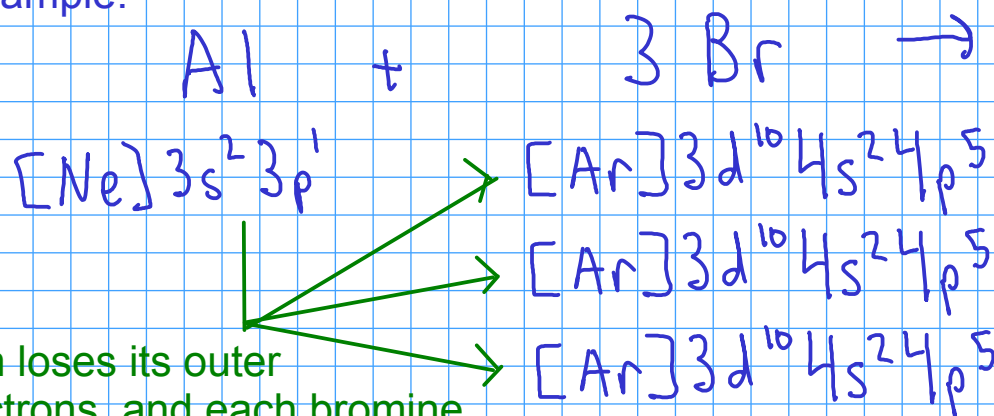 Al + 3 Br →
[Ne]3s²3p¹ [Ar]3d¹⁰4s²4p⁵
[Ar]3d¹⁰4s²4p⁵
[Ar]3d¹⁰4s²4p⁵
loses its outer
and each bromine